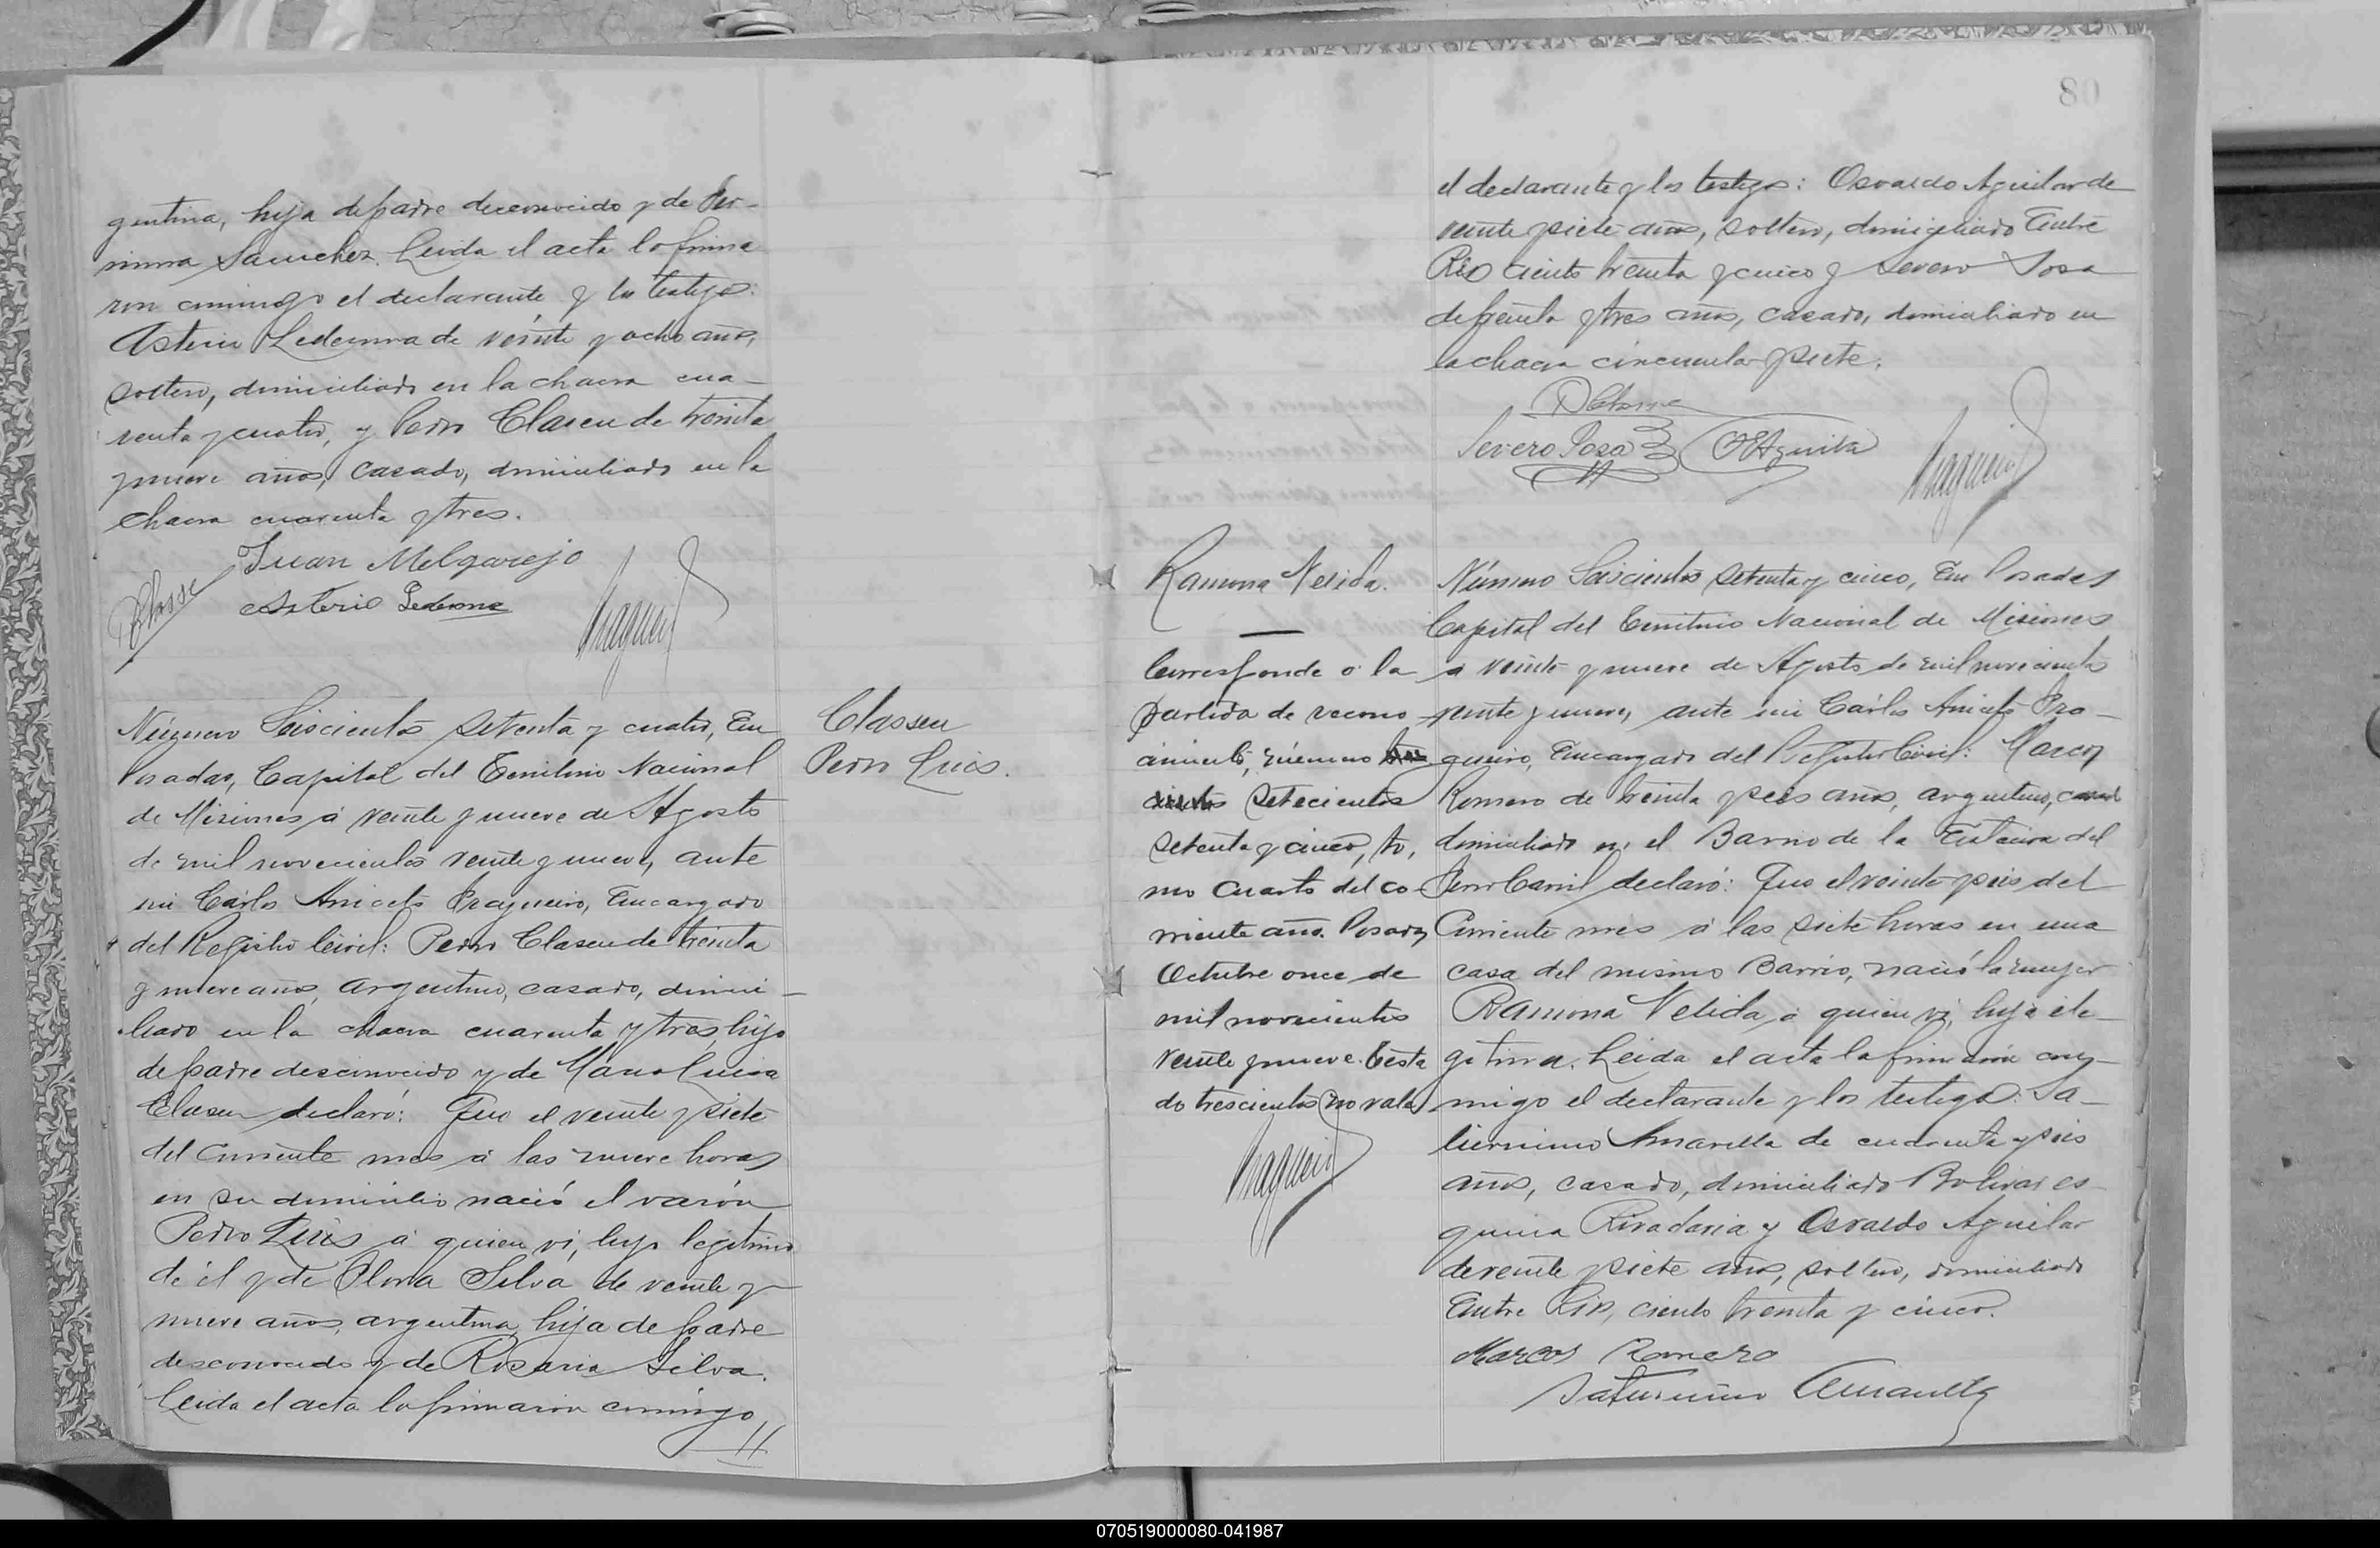 gentina, hija de padre desconocido y de Her-
minia Sanchez. Leida el acta la firma
ron conmigo el declarante y los testigos:
Asterio Ledesma de veinte y ocho años,
soltero, domiciliado en la chacra cua-
renta y cuatro, y Pedro Clasen de treinta
y nueve años, casado, domiciliado en la
chacra cuarenta y tres.
Juan Melgarejo
Asterio Ledesma
Número Seiscientos setenta y cuatro, En
Posadas, Capital del Territorio Nacional
de Misiones á veinte y nueve de Agosto
de mil novecientos veinte y nueve, ante
mi Cárlos Aniceto Fragueiro, Encargado
del Registro Civil: Pedro Clasen de treinta
y nueve años, argentino, casado, domici-
liado en la chacra cuarenta y tres, hijo
de padre desconocido y de Maria Luisa
Clasen declaró: Que el veinte y siete
del corriente mes á las nueve horas
en su domicilio nació el varón
Pedro Luis á quien vi, hijo legítimo
de él y de Silva de veinte y
nueve años, argentina, hija de padre
desconocido y de Rosaria Silva.
Leida el acta la firmaron conmigo,
Classen
Pedro Luis.
80
el declarante y los testigos: Osvaldo Aguilar de
veinte y siete años, soltero, domiciliado Entre
Rios ciento treinta y cinco y Severo Sosa
de treinta y tres años, casado, domiciliado en
la chacra cincuenta y siete.
Severo Sosa
Ramona Nelida.
Corresponde á la
partida de recono
cimiento, número
Setecientos
setenta y cinco, to,
mo cuarto del co-
rriente año. Posadas
Octubre once de
mil novecientos
veinte y nueve. Testa
do trescientos no vale
Número Seiscientos setenta y cinco, En Posadas
Capital del Territorio Nacional de Misiones
á veinte y nueve de Agosto de mil novecientos
veinte y nueve, ante mi Cárlos Aniceto Fra-
gueiro, Encargado del Registro Civil: Marcos
Romero de treinta y seis años, argentino, casado
domiciliado en el Barrio de la Estacion del
Ferro Carril declaró: Que el veinte y seis del
Corriente mes á las siete horas en una
casa del mismo Barrio, nació la mujer
Ramona Nelida á quien vi, hija ile-
gitima. Leida el acta la firmaron con-
migo el declarante y los testigos: Sa-
turnino Amarilla de cuarenta y seis
años, casado, domiciliado Bolivar es-
quina Rivadavia y Osvaldo Aguilar
de veinte y siete años, soltero, domiciliado
Entre Rios, ciento treinta y cinco.
Marcos Romero
Saturnino Amarilla
070519000080-041987